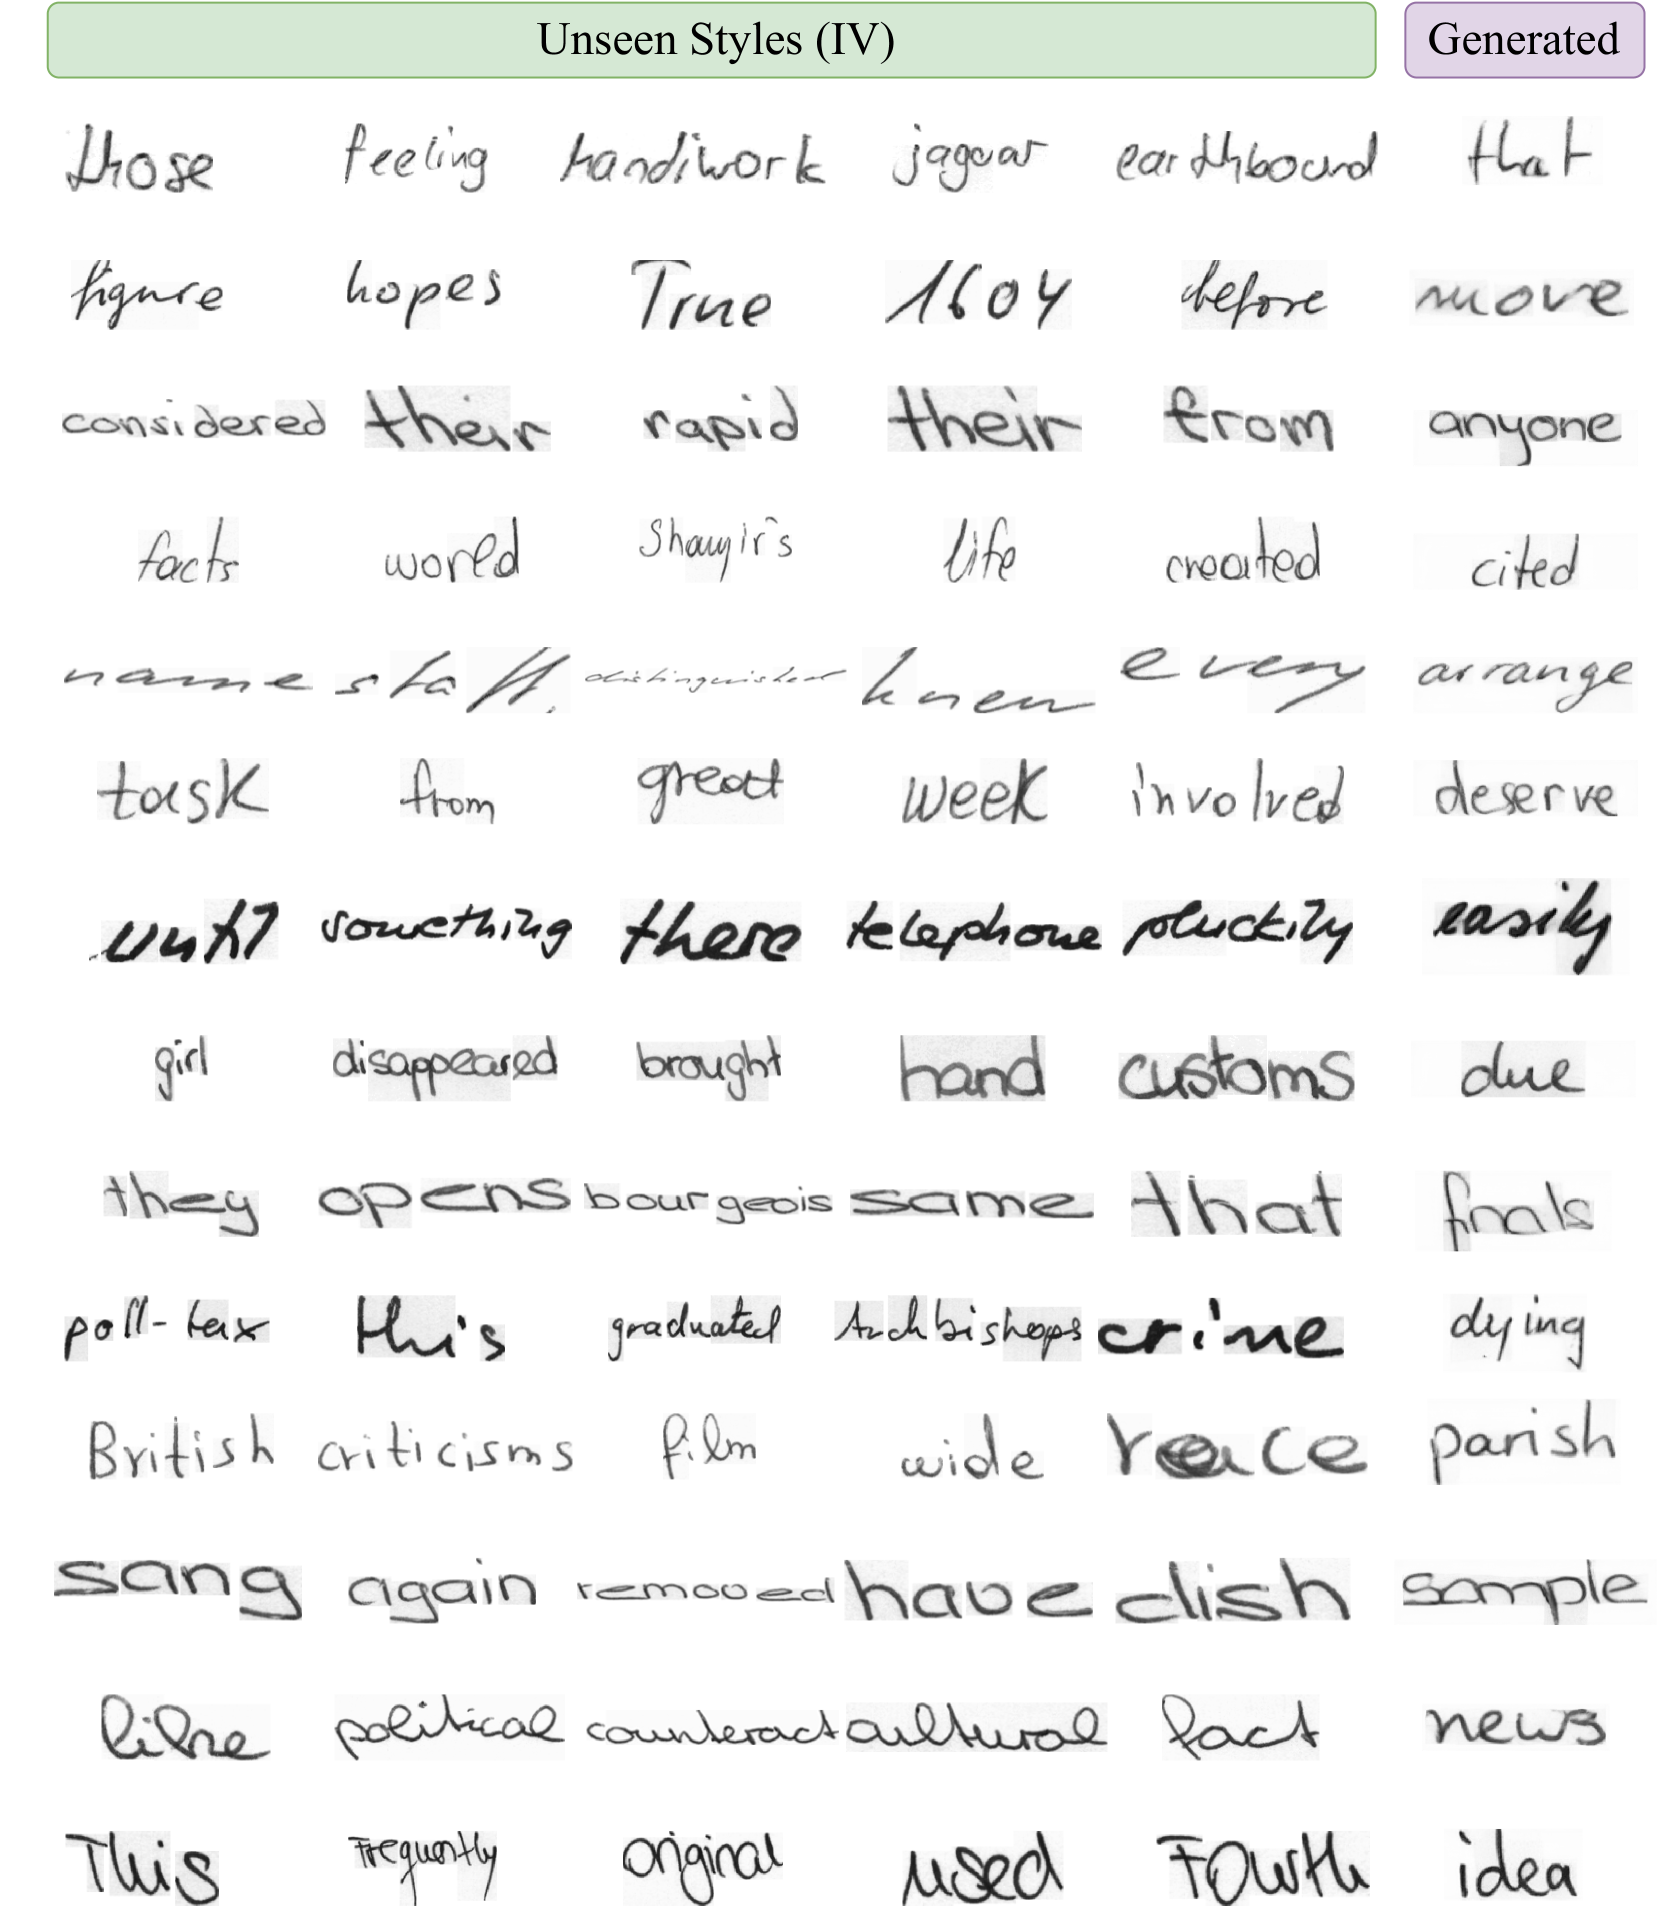 Unseen Styles (IV) Generated
those feeling handiwork jaguar earthbound that
figure hopes True 1604 before move
considered their rapid their from anyone
facts world life created cited
name staff. distinguished knew every arrange
task from great week involved deserve
until something there telephone pluckily easily
girl disappeared brought hand customs due
they opens bourgeois same that finals
poll-tax this graduated Archbishops crime dying
British criticisms film wide race parish
sang again removed have dish sample
like political counteract cultural fact news
This Frequently Original used Fourth idea